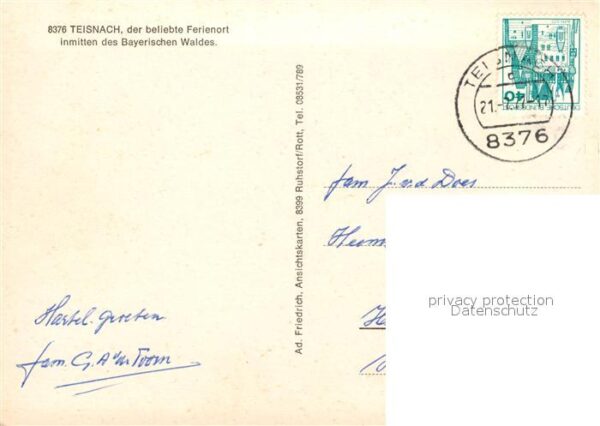 8376 TEISNACH, der beliebte Ferienort
inmitten des Bayerischen Waldes.
Ad. Friedrich, Ansichtskarten, 8399 Ruhstorf/Rott, Tel. 08531/789
40
TEISNACH
21.
8376
fam J. v. d. Does
privacy protection
Datenschutz
Hartel. groeten
fam. G. A. v. Toorn